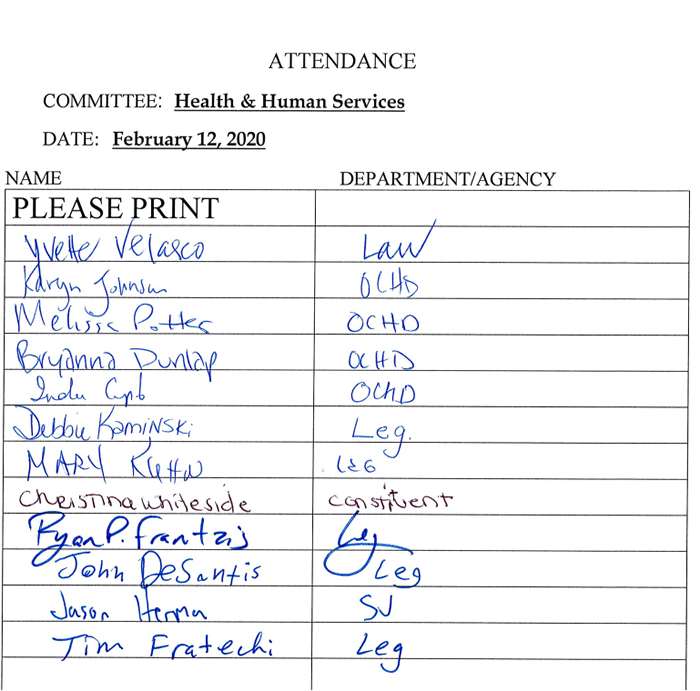 ATTENDANCE
COMMITTEE: Health & Human Services
DATE: February 12, 2020
NAME DEPARTMENT/AGENCY
PLEASE PRINT
Yvette Velasco Law
Karyn Johnson OCHD
Melissa Potter OCHD
Bryanna Dunlap OCHD
Indu OCHD
Debbie Kaminski Leg.
MARY LEG
Christina whiteside constituent
Ryan P. Frantzis Leg
John DeSantis Leg
Jason Herman SJ
Tim Fratechi Leg